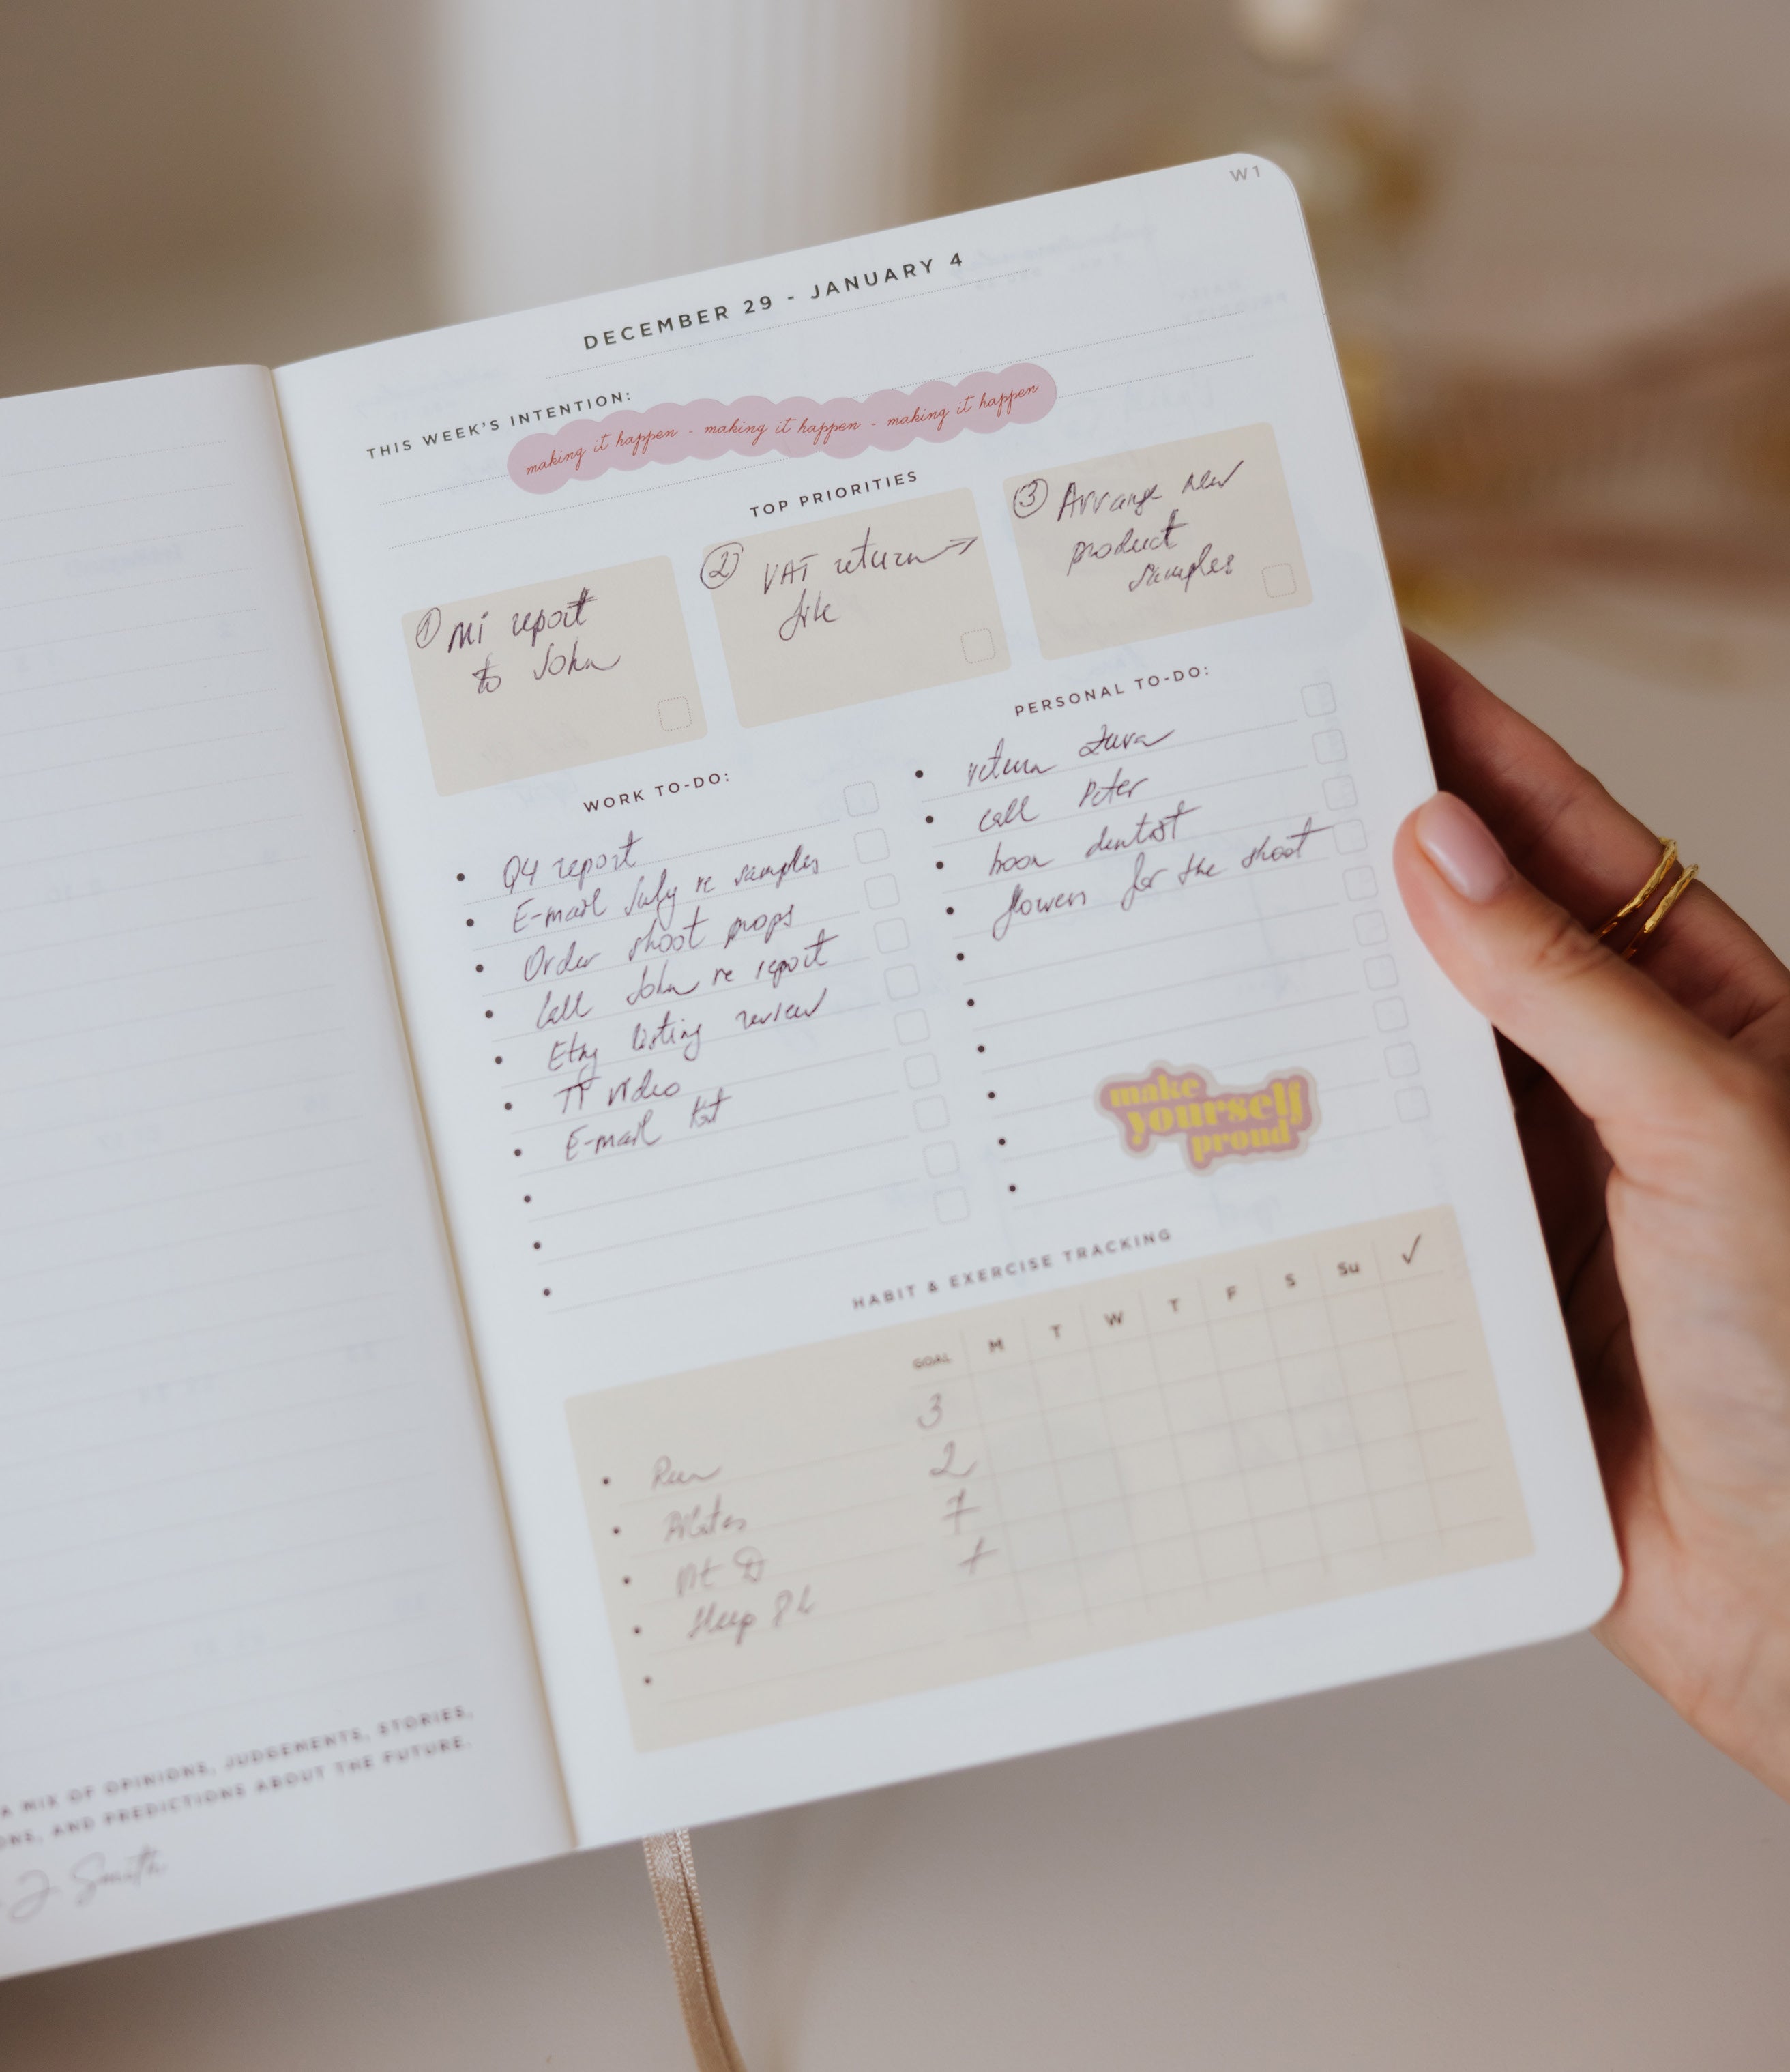 W1
DECEMBER 29 - JANUARY 4
THIS WEEK'S INTENTION:
making it happen - making it happen - making it happen
TOP PRIORITIES
1 MI report
to John
2 VAT return →
file
3 Arrange new
product
samples
WORK TO-DO:
Q4 report
E-mail July re samples
Order shoot props
Call John re report
Etsy listing review
TT video
E-mail
PERSONAL TO-DO:
return Zara
call Peter
book dentist
flowers for the shoot
make
yourself
proud
HABIT & EXERCISE TRACKING
GOAL M T W T F S Su ✓
Run 3
Pilates 2
Vit D 7
Sleep 8h
A MIX OF OPINIONS, JUDGEMENTS, STORIES,
AND PREDICTIONS ABOUT THE FUTURE.
J Smith